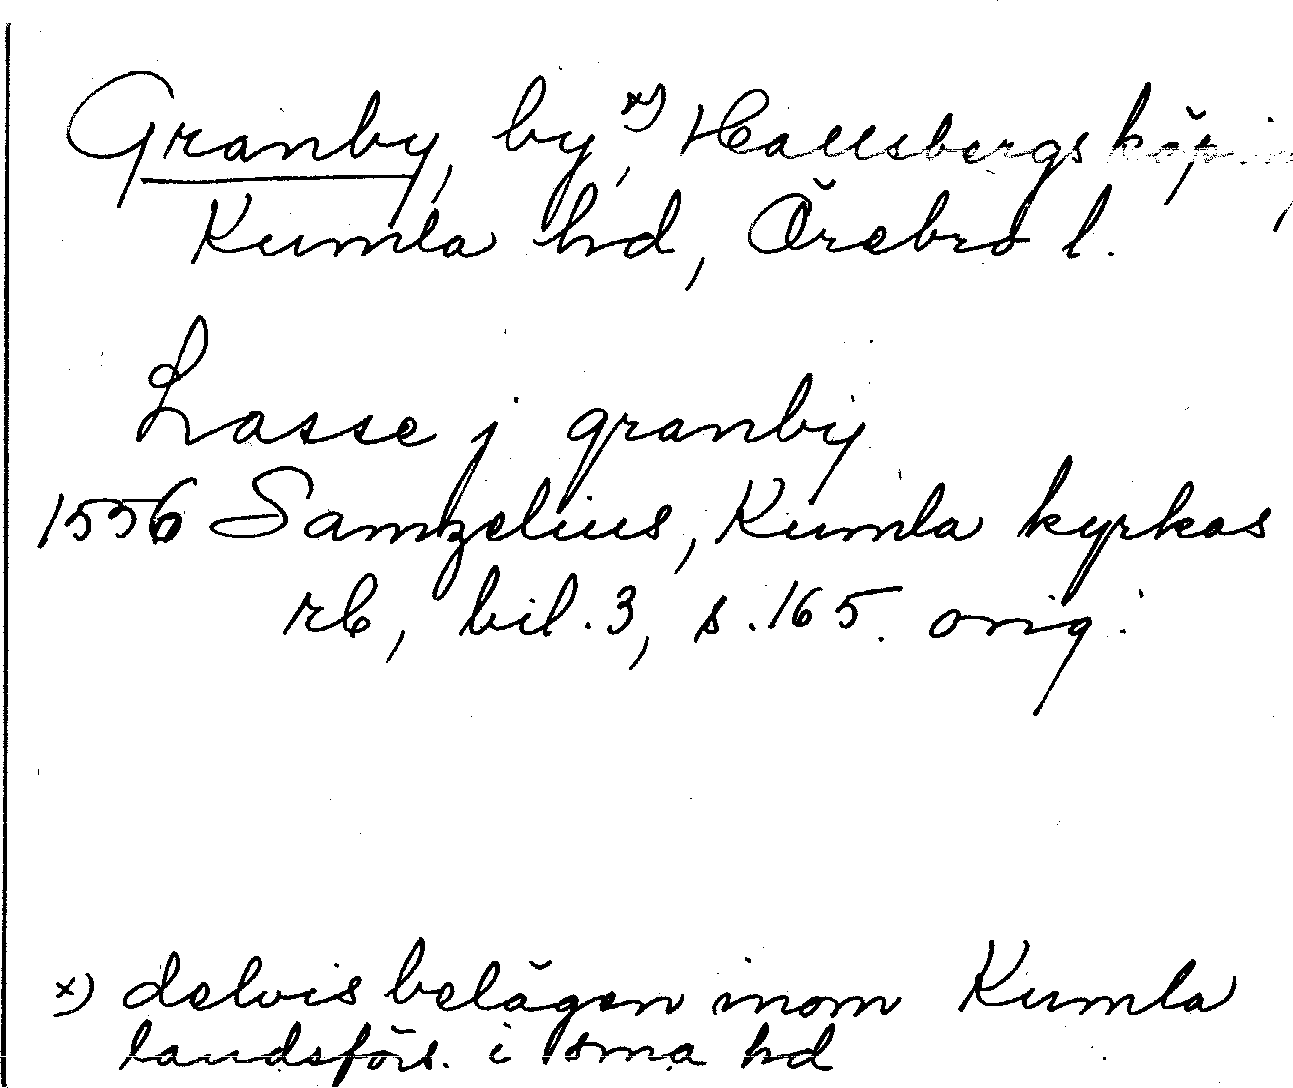 Granby, by,ˣ⁾ Hallsbergs köping,
Kumla hd, Örebro l.
Lasse j granby
1556 Samzelius, Kumla kyrkas
rb, bil. 3, s. 165. orig.
x) delvis belägen inom Kumla
landsförs. i sma hd